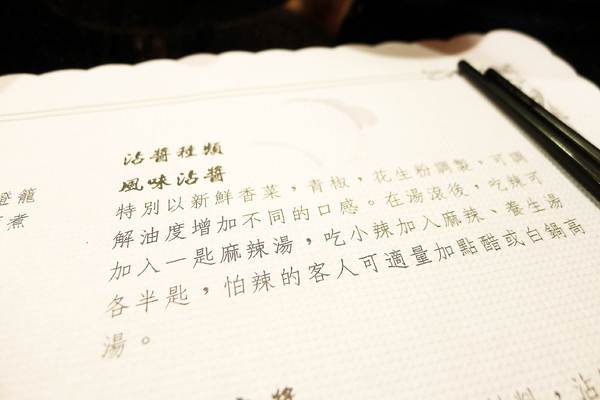 沾醬種類
風味沾醬
特別以新鮮香菜，青椒，花生粉調製，可調
解油度增加不同的口感。在湯滾後，吃辣可
加入一匙麻辣湯，吃小辣加入麻辣、養生湯
各半匙，怕辣的客人可適量加點醋或白鍋高
湯。
籠
煮